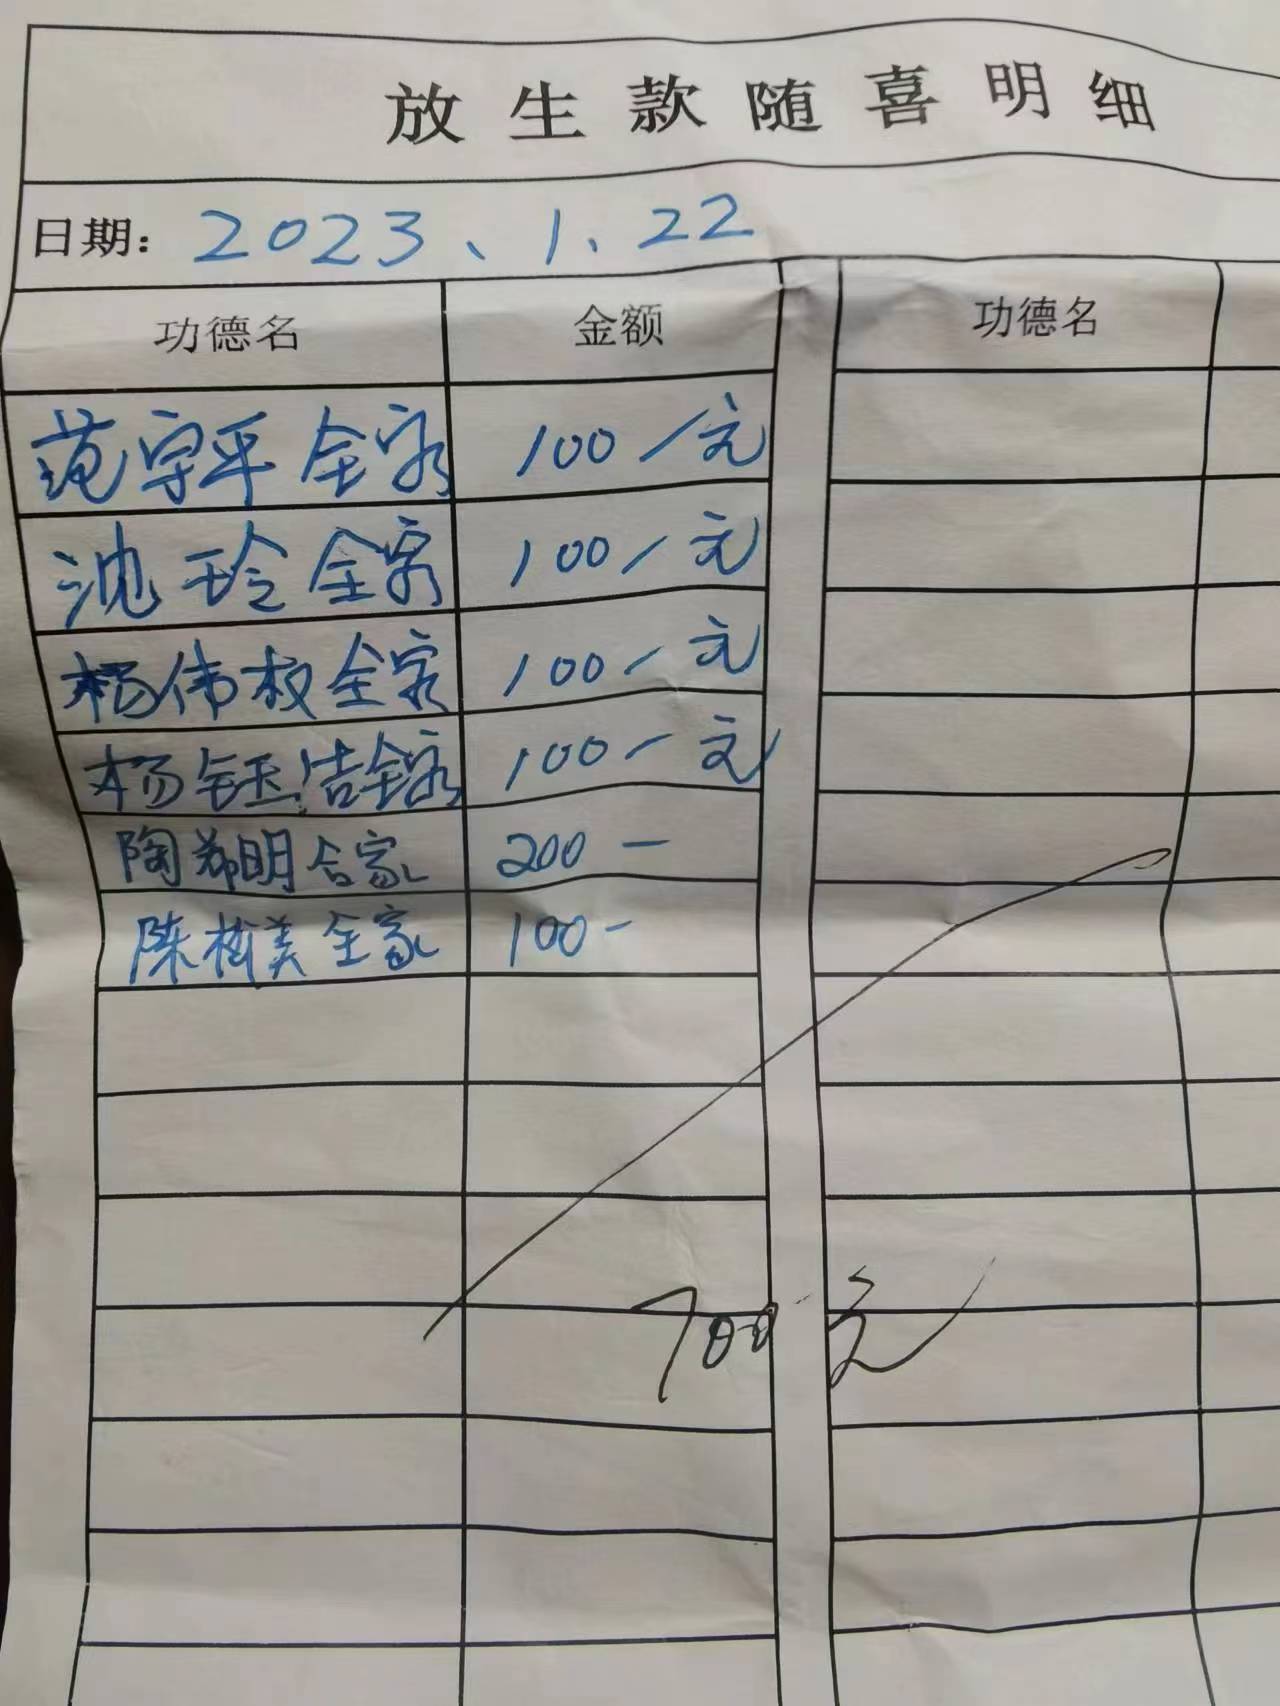 放生款随喜明细
日期: 2023、1、22
功德名 金额 功德名
范宇平全家 100/元
沈玲全家 100/元
杨伟权全家 100/元
杨钰洁全家 100/元
陶明合家 200—
陈美全家 100-
700元